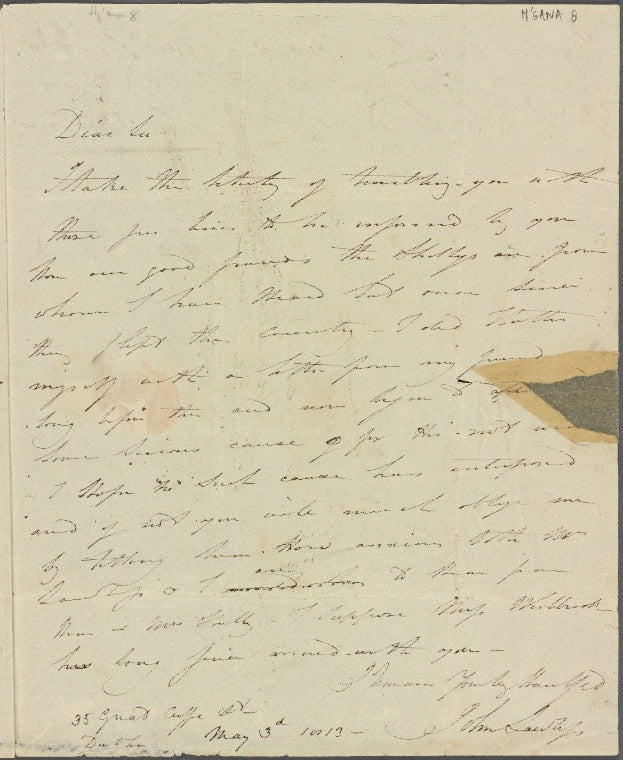 H'ANA 8
M'GANA 8
Dear Sir
I take the liberty of troubling you with
these few lines to be informed by you
how our good friends the Shelleys are from
whom I have heard but once since
they left this country - I did flatter
myself with a letter from my friend
long before this and now begin to
some serious cause for his not
I hope no such cause has interposed
and if not you will much oblige me
by telling them how anxious both Mrs
Lawless & I are to hear from
him & Mrs Shelley - I suppose Miss Westbrook
has long since arrived with you -
I remain yours
35 Great Cuffe St
John Lawless
Dublin May 3d 1813 -